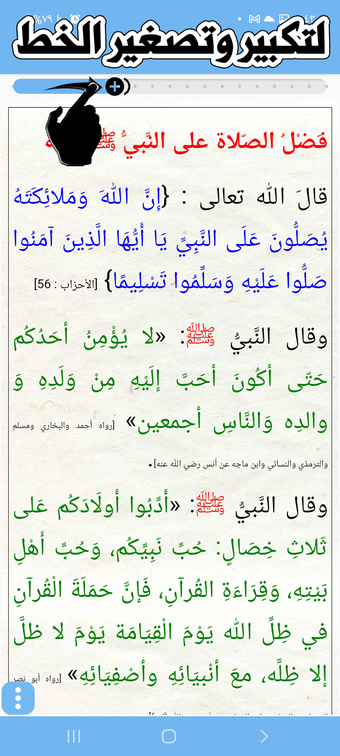 ٧٩%
لتكبير وتصغير الخط
فَضْلُ الصّلاة على النَّبيُّ ﷺ
قالَ الله تعالى : {إِنَّ اللهَ وَمَلائِكَتَهُ
يُصَلُّونَ عَلَى النَّبِيِّ يَا أَيُّهَا الَّذِينَ آمَنُوا
صَلُّوا عَلَيْهِ وَسَلِّمُوا تَسْلِيمًا} [الأحزاب : 56]
وقال النَّبيُّ ﷺ: «لا يُؤْمِنُ أحَدُكُم
حَتّى أكُونَ أحَبَّ إلَيْهِ مِنْ وَلَدِهِ وَ
والدِه وَالنَّاسِ أجمعين» [رواه أحمد والبخاري ومسلم
والترمذي والنسائي وابن ماجه عن أنس رضي الله عنه].
وقال النَّبيُّ ﷺ: «أَدِّبُوا أَولَادَكُم عَلى
ثَلاثِ خِصَالٍ: حُبِّ نَبِيِّكُم، وَحُبِّ أَهْلِ
بَيْتِهِ، وَقِرَاءَةِ القُرآنِ، فَإنَّ حَمَلَةَ الْقُرآنِ
في ظِلِّ الله يَوْمَ الْقِيَامَة يَوْمَ لا ظلَّ
إلا ظِلَّه، معَ أنْبيَائِهِ وأصْفِيَائِهِ» [رواه أبو نصر